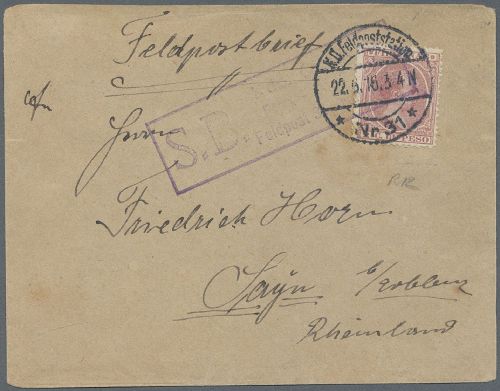 Feldpostbrief
K.D.Feldpoststation
22.6.16.3-4N
* Nr.31 *
PESO
S.B.
Feldpost
Herrn
R12
Friedrich Horn
Sayn b/Coblenz
Rheinland